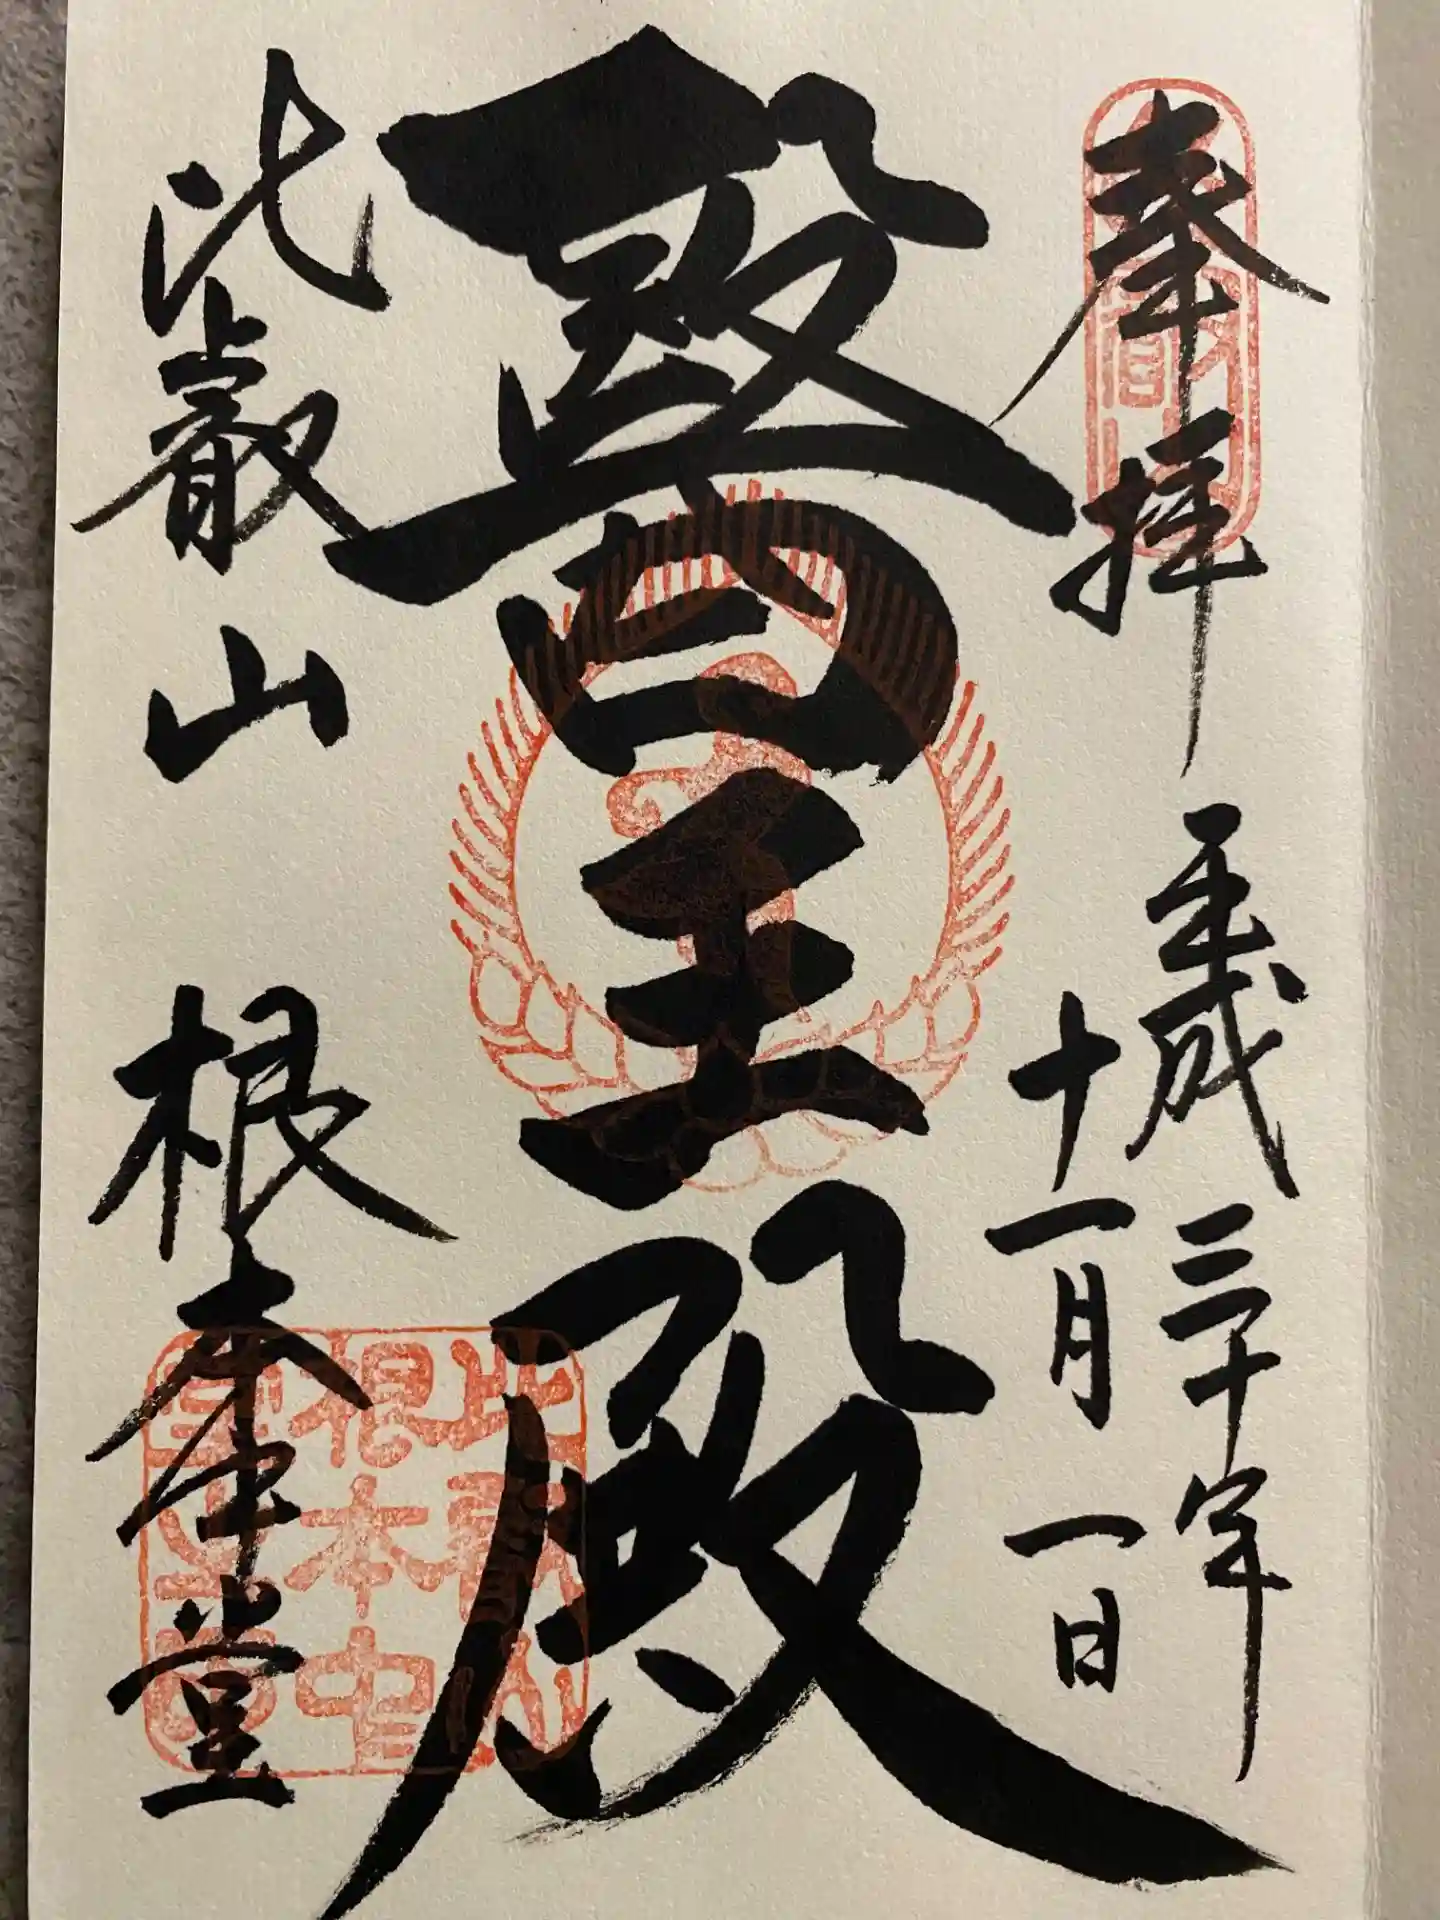 奉拝
平成三十年
十一月一日
醫王殿
比叡山 根本中堂
比叡山
根本中堂